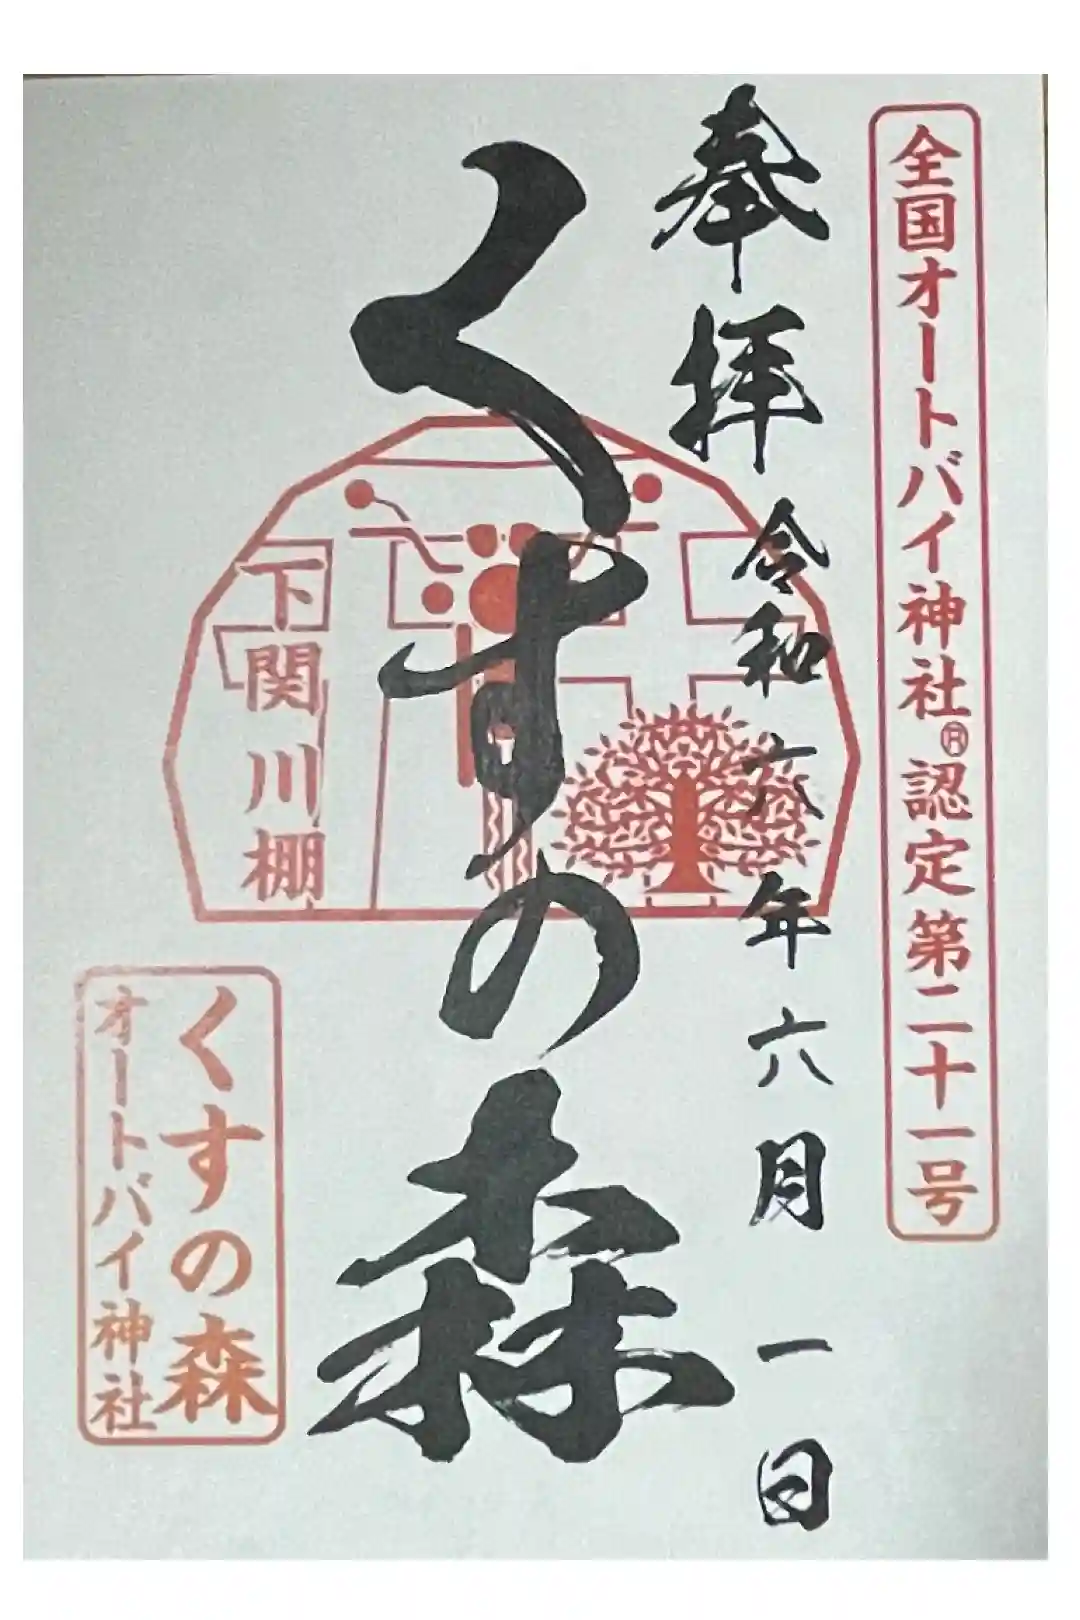 全国オートバイ神社®認定第二十一号
奉拝 令和六年六月一日
くすの森
下関川棚
くすの森
オートバイ神社